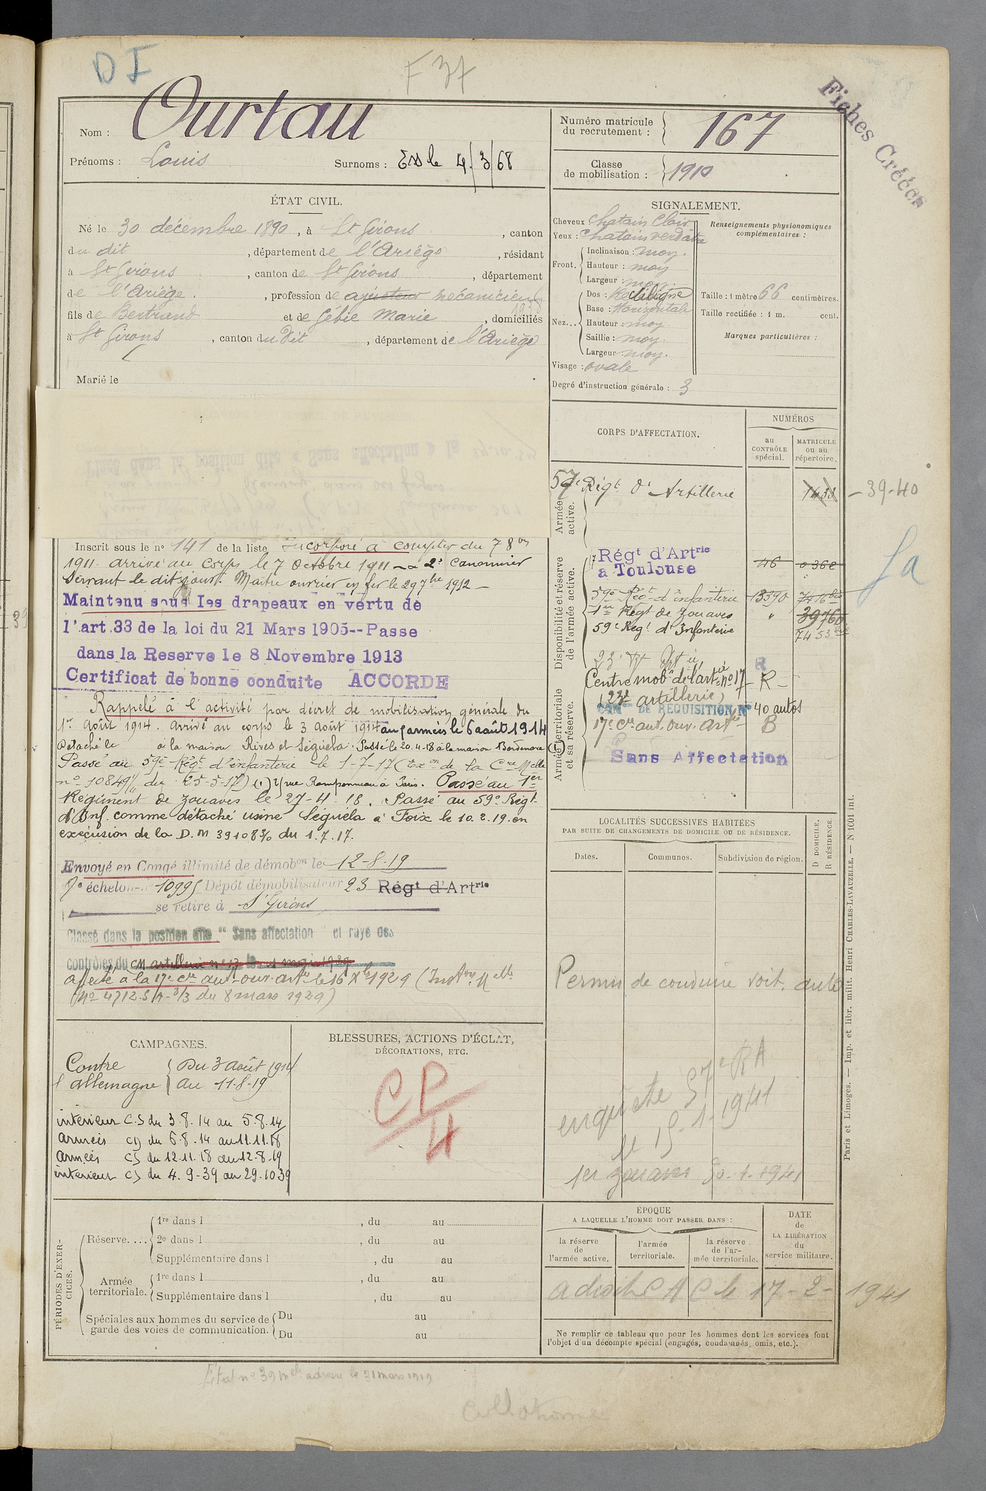 D I
F 37
Fiches Créées
Nom : Ourtau
Prénoms : Louis Surnoms : 4/3/68
Numéro matricule
du recrutement : 167
Classe
de mobilisation : 1910
ÉTAT CIVIL.
Né le 30 décembre 1890, à St Girons, canton
du dit, département de l'Ariège, résidant
à St Girons, canton de St Girons, département
de l'Ariège, profession de ajusteur mécanicien
fils de Bertrand et de Gébie Marie, domiciliés
à St Girons, canton du dit, département de l'Ariège
Marié le
SIGNALEMENT.
Cheveux chatain clair
Yeux : chatain verdâtre
Front. Inclinaison : moy.
Hauteur : moy
Largeur : moy
Nez... Dos : Rectiligne
Base : Horizontale
Hauteur moy
Saillie : moy.
Largeur moy.
Visage : ovale
Degré d'instruction générale : 3
Renseignements physionomiques
complémentaires :
Taille : 1 mètre 66 centimètres.
Taille rectifiée : 1 m. cent.
Marques particulières :
Inscrit sous le no 141 de la liste Incorporé à compter du 7 8bre
1911 arrivé au corps le 7 octobre 1911 2e canonnier
Servant le dit jour. Maitre ouvrier en fer le 29 7bre 1912
Maintenu sous les drapeaux en vertu de
l'art.33 de la loi du 21 Mars 1905--Passe
dans la Reserve le 8 Novembre 1913
Certificat de bonne conduite ACCORDE
Rappelé à l'activité par décret de mobilisation générale du
1er août 1914. Arrivé au corps le 3 août 1914 aux armées le 6 août 1914
Détaché le à la maison Rives et Séguela. Passé le 20.4.18 à la maison
Passé au 59e Régt d'infanterie le 1-7-17
Passé au 1er
Régiment de zouaves le 27-4-18. Passé au 59e Régt
d'Inf. comme détaché usine Séguela à Foix le 10.2.19 en
exécution de la D.M 39108 du 1.7.17.
Envoyé en Congé illimité de démobon le 12-8-19
échelon Dépôt démobilisateur 23 Régt d'Artrie
se retire à St Girons
Classé dans la position dite " Sans affectation " et rayé des
contrôles du CM artillerie no 17 le 1 mai 1929
affecté à la 17e Cie aut. ouv. artie le 16 Xbre 1929
du 8 mars 1929)
CORPS D'AFFECTATION.
NUMÉROS
au
CONTRÔLE
spécial.
MATRICULE
ou au
répertoire.
Armée
active.
57e Régt d'Artillerie 1433
- 39-40
Disponibilité et réserve
de l'armée active.
Régt d'Artrie
à Toulouse
59e Régt d'infanterie 13390
1er Régt de zouaves 39760
59e Régt d'Infanterie
23
Centre mob de l'artie no 17 R
Armée territoriale
et sa réserve.
(23e artillerie)
CANon DE REQUISITION No 40 autos
17e Cie aut. ouv. Artie B
Sans Affectation
LOCALITÉS SUCCESSIVES HABITÉES
PAR SUITE DE CHANGEMENTS DE DOMICILE OU DE RÉSIDENCE.
Dates. Communes. Subdivision de région.
D DOMICILE,
R RÉSIDENCE.
Permis de conduire voit. auto
enquête 57e RA
le 15-1-1941
1er zouaves 30.1.1941
CAMPAGNES.
Contre
l'allemagne
Du 3 août 1914
au 11-8-19
intérieur CS du 3.8.14 au 5.8.14
armées CD du 6.8.14 au 11.11.18
armées CS du 12.11.18 au 12.8.19
intérieur CS du 4.9.39 au 29.10.39
BLESSURES, ACTIONS D'ÉCLAT,
DÉCORATIONS, ETC.
CP
4
PÉRIODES D'EXERCICES.
Réserve....
1re dans l , du au
2e dans l , du au
Supplémentaire dans l , du au
Armée
territoriale.
1re dans l , du au
Supplémentaire dans l , du au
Spéciales aux hommes du service de
garde des voies de communication.
Du au
Du au
ÉPOQUE
A LAQUELLE L'HOMME DOIT PASSER DANS :
la réserve
de
l'armée active.
l'armée
territoriale.
la réserve
de l'armée
territoriale.
DATE
de
LA LIBÉRATION
du
service militaire.
C A C le 17-2-1941
Ne remplir ce tableau que pour les hommes dont les services font
l'objet d'un décompte spécial (engagés, condamnés, omis, etc.).
Paris et Limoges. — Imp. et libr. milit. Henri CHARLES-LAVAUZELLE. — N 1001 int.